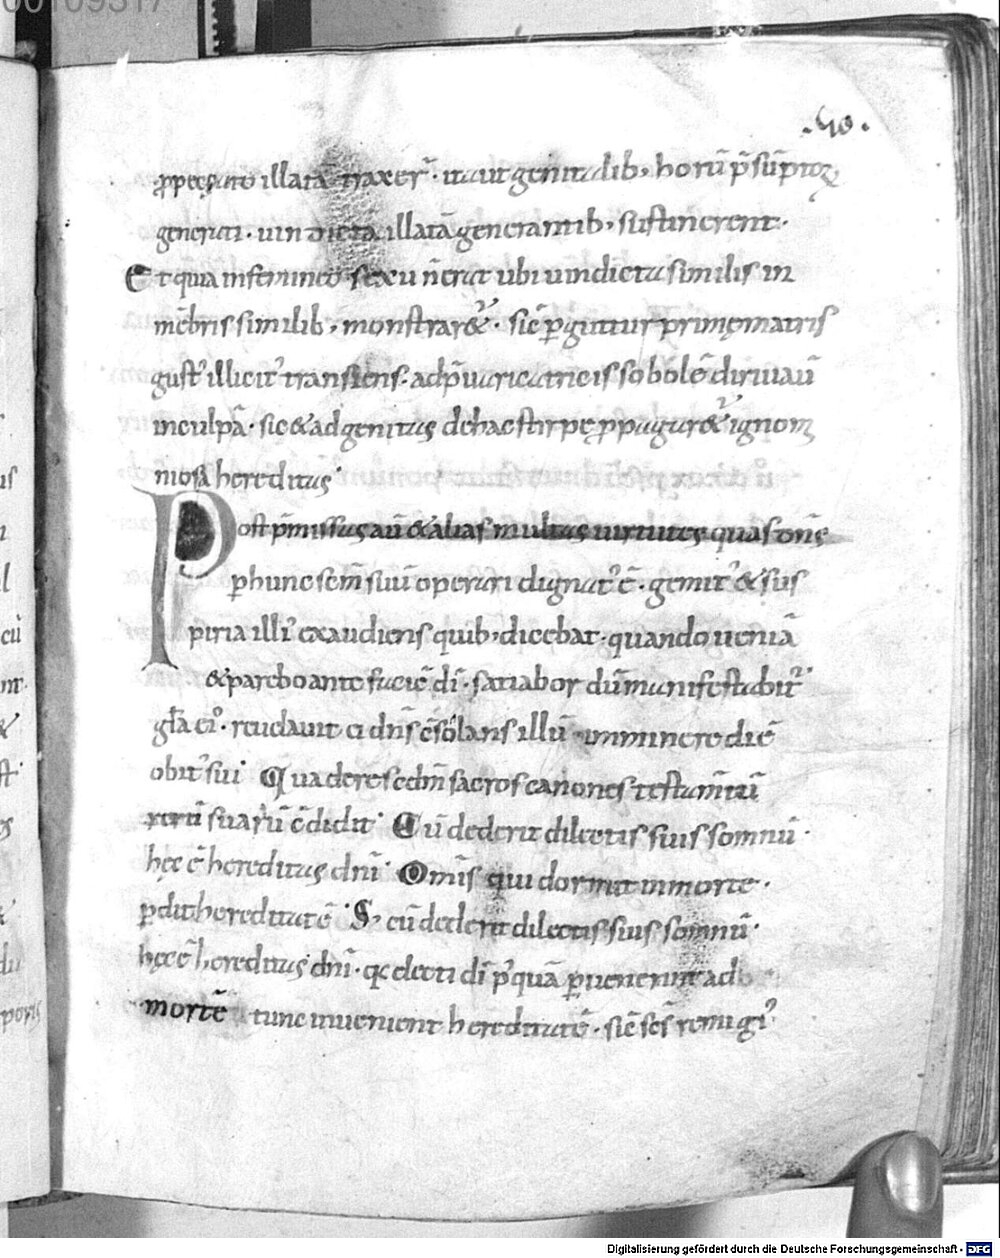 00109317
.40.
ꝓpeccato illatā traxer̄. ita ut genitalib; horū p̄sūptoꝝ
generati. uindicta illatā generantib; sustinerent.
Et quia in femineo sexu ñ erat ubi uindicta similis in
mēbris similib; monstrar&. sic̄ ꝑ guttur primę matris
gustꝰ illicitꝰ transiens. ad p̄uaricatricis sobolē diriuau̅
in culpā. sic & ad genitas de hac stirpe ꝓpagar& ignom
niosa hereditas
Post p̄missas au̅ & alias multas uirtutes quas om̄s
ꝑ hunc scm̄ suū operari dignatꝰ ē. gemitꝰ & sus
piria illiꝰ exaudiens quib; dicebat. quando ueniā
& parebo ante faciē di̅. satiabor dū manifestabit̄
gła eiꝰ. reuelauit ei dn̄s c̄solans illū imminere diē
obitꝰ sui Qua de re scdm̄ sacros canones testam̄tū
rerū suarū c̄didit Cū dederit dilectis suis somnū.
hęc ē hereditas dn̄i Om̄is qui dormit in morte.
ꝑdit hereditatē S; cū dederit dilectis suis somnū.
hęc ē hereditas dn̄i. q electi di̅ p̄quā ꝑuenerint ad
mortē tunc inuenient hereditatē. sic̄ scs̄ remigiꝰ
Digitalisierung gefördert durch die Deutsche Forschungsgemeinschaft - DFG